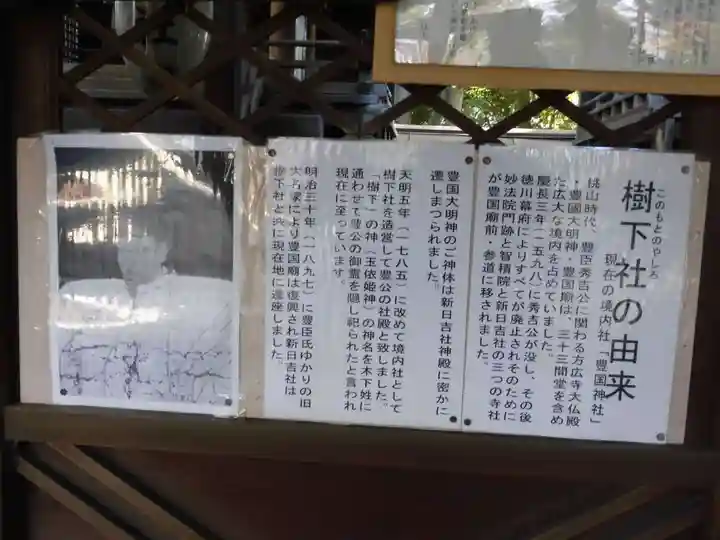 このもとのやしろ
樹下社の由来
現在の境内社「豊国神社」
桃山時代、豊臣秀吉公に関わる方広寺大仏殿
・豊國大明神・豊国廟は、三十三間堂を含め
た広大な境内を占めていました。
慶長三年(一五九八)に秀吉公が没し、その後
徳川幕府によりすべてが廃止されそのために
妙法院門跡と智積院と新日吉社の三つの寺社
が豊国廟前・参道に移されました。
豊国大明神のご神体は新日吉社神殿に密かに
遷しまつられました。
天明五年(一七八五)に改めて境内社として
樹下社を造営して豊公の社殿と致しました。
「樹下」の神(玉依姫神)の神名を木下姓に
通わせて豊公の御霊を隠し祀られたと言われ
現在に至っています。
明治三十年(一八九七)に豊臣氏ゆかりの旧
大名家により豊国廟は復興され新日吉社は
樹下社と共に現在地に遷座しました。